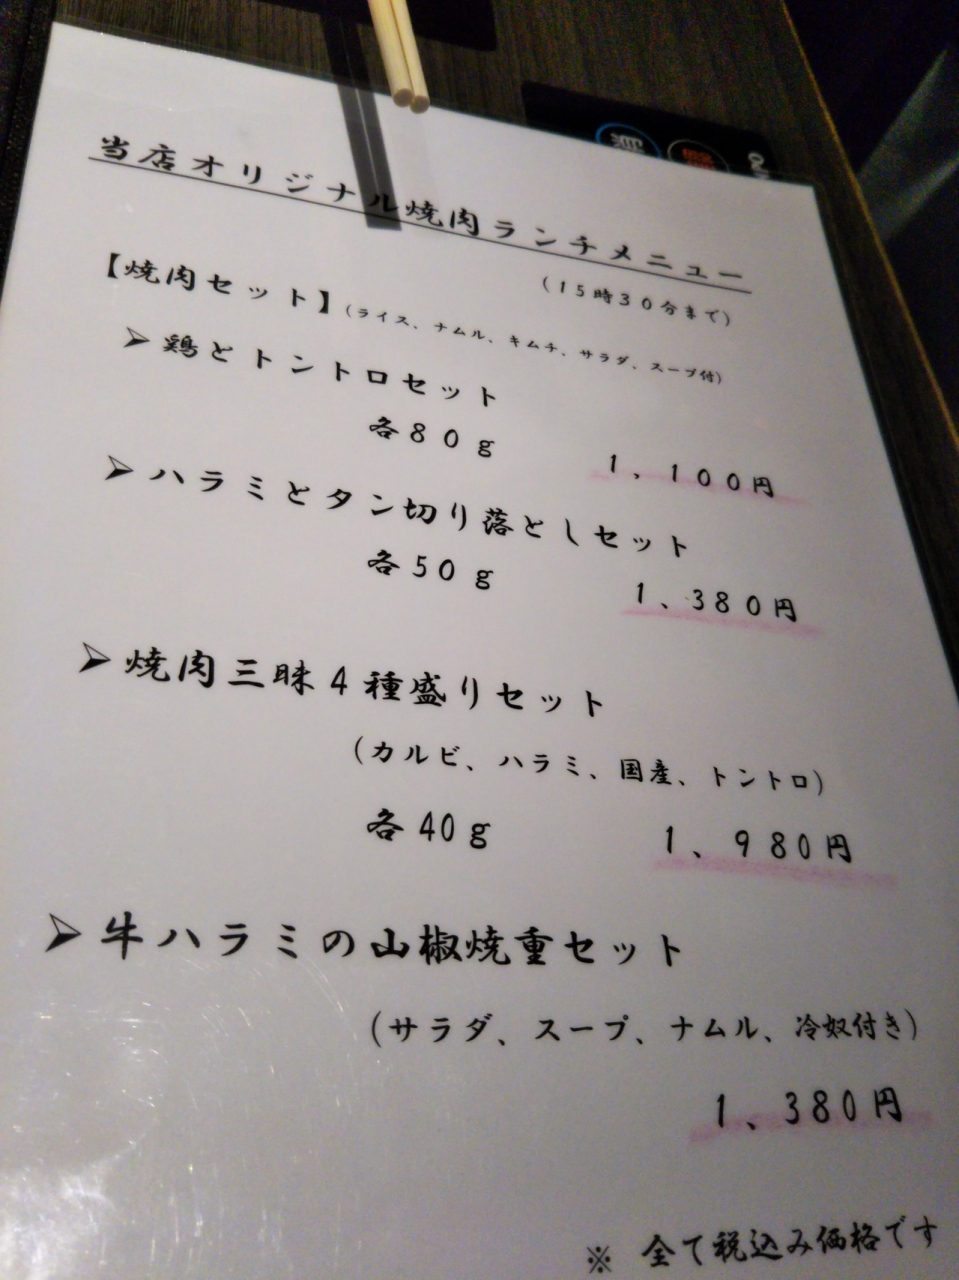 当店オリジナル焼肉ランチメニュー
(15時30分まで)
【焼肉セット】(ライス、ナムル、キムチ、サラダ、スープ付)
➢ 鶏とトントロセット
各80g 1,100円
➢ ハラミとタン切り落としセット
各50g 1、380円
➢ 焼肉三昧4種盛りセット
(カルビ、ハラミ、国産、トントロ)
各40g 1、980円
➢ 牛ハラミの山椒焼重セット
(サラダ、スープ、ナムル、冷奴付き)
1、380円
※ 全て税込み価格です